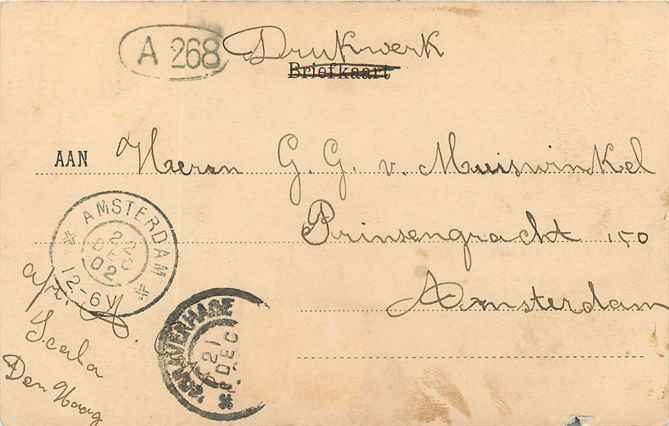 A 268
Drukwerk
Briefkaart
AAN Heeren G. G. v. Muiswinkel
Prinsengracht 150
Amsterdam
AMSTERDAM
22
DEC
02
12-6V
'SGRAVENHAGE
21
DEC
Scala
Den Haag